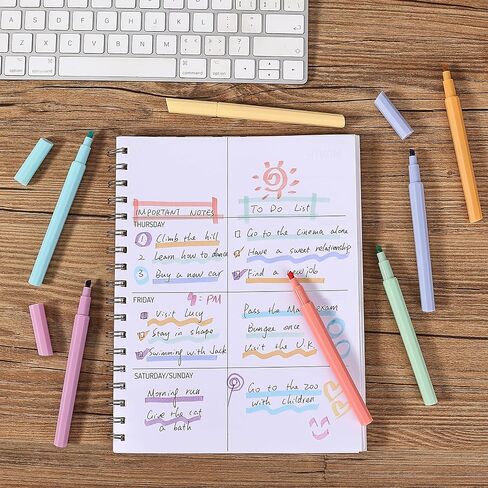 IMPORTANT NOTES
To Do List
THURSDAY
1 Climb the hill
2 Learn how to dance
3 Buy a new car
Go to the cinema alone
Have a sweet relationship
Find a new job
FRIDAY
8:PM
Visit Lucy
Stay in shape
Swimming with Jack
Pass the exam
Bungee once
Visit the U.K.
SATURDAY/SUNDAY
Morning run
Give the cat
a bath
Go to the zoo
with children
control
option
command
command
option